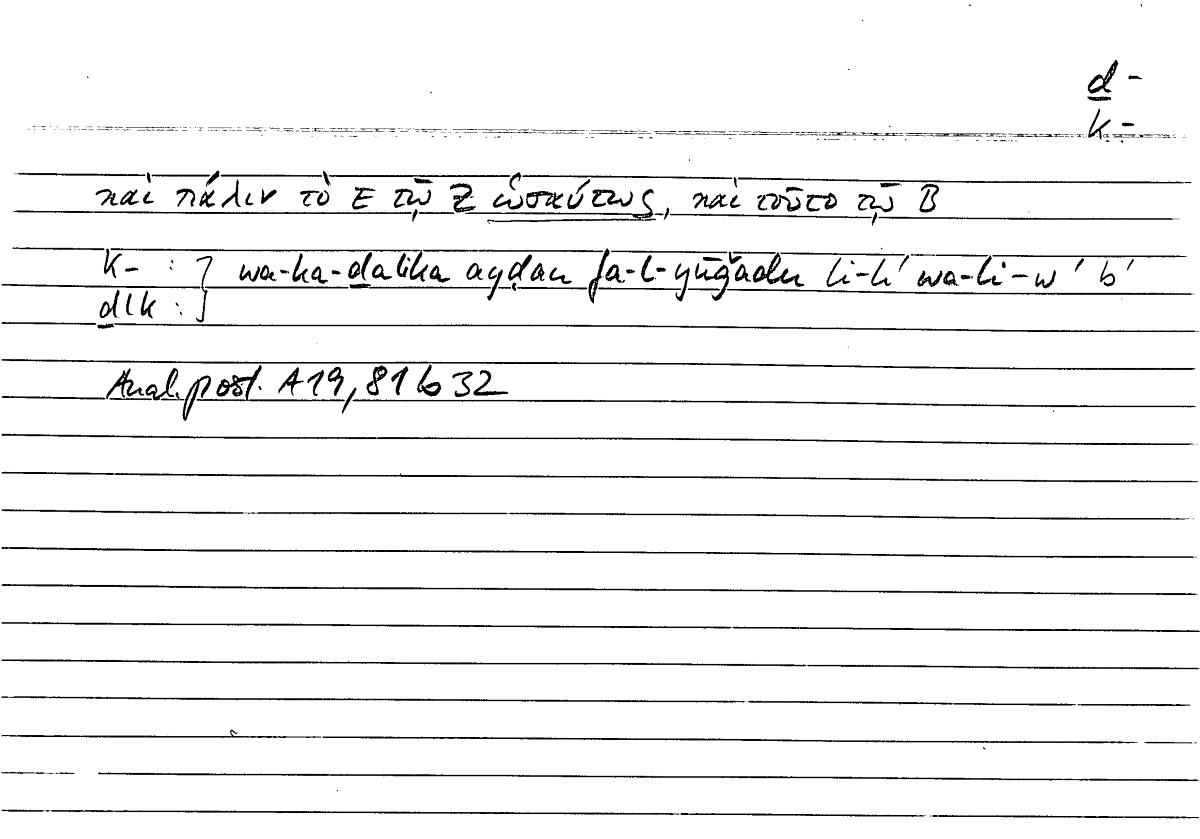 ḏ-
k-
καὶ πάλιν τὸ Ε τῷ Ζ ὡσαύτως, καὶ τοῦτο τῷ Β
k- : } wa-ka-ḏalika ayḍan fa-l-yūǧadu li-h' wa-li-w' b'
ḏlk :
Anal. post. A19, 81 b 32